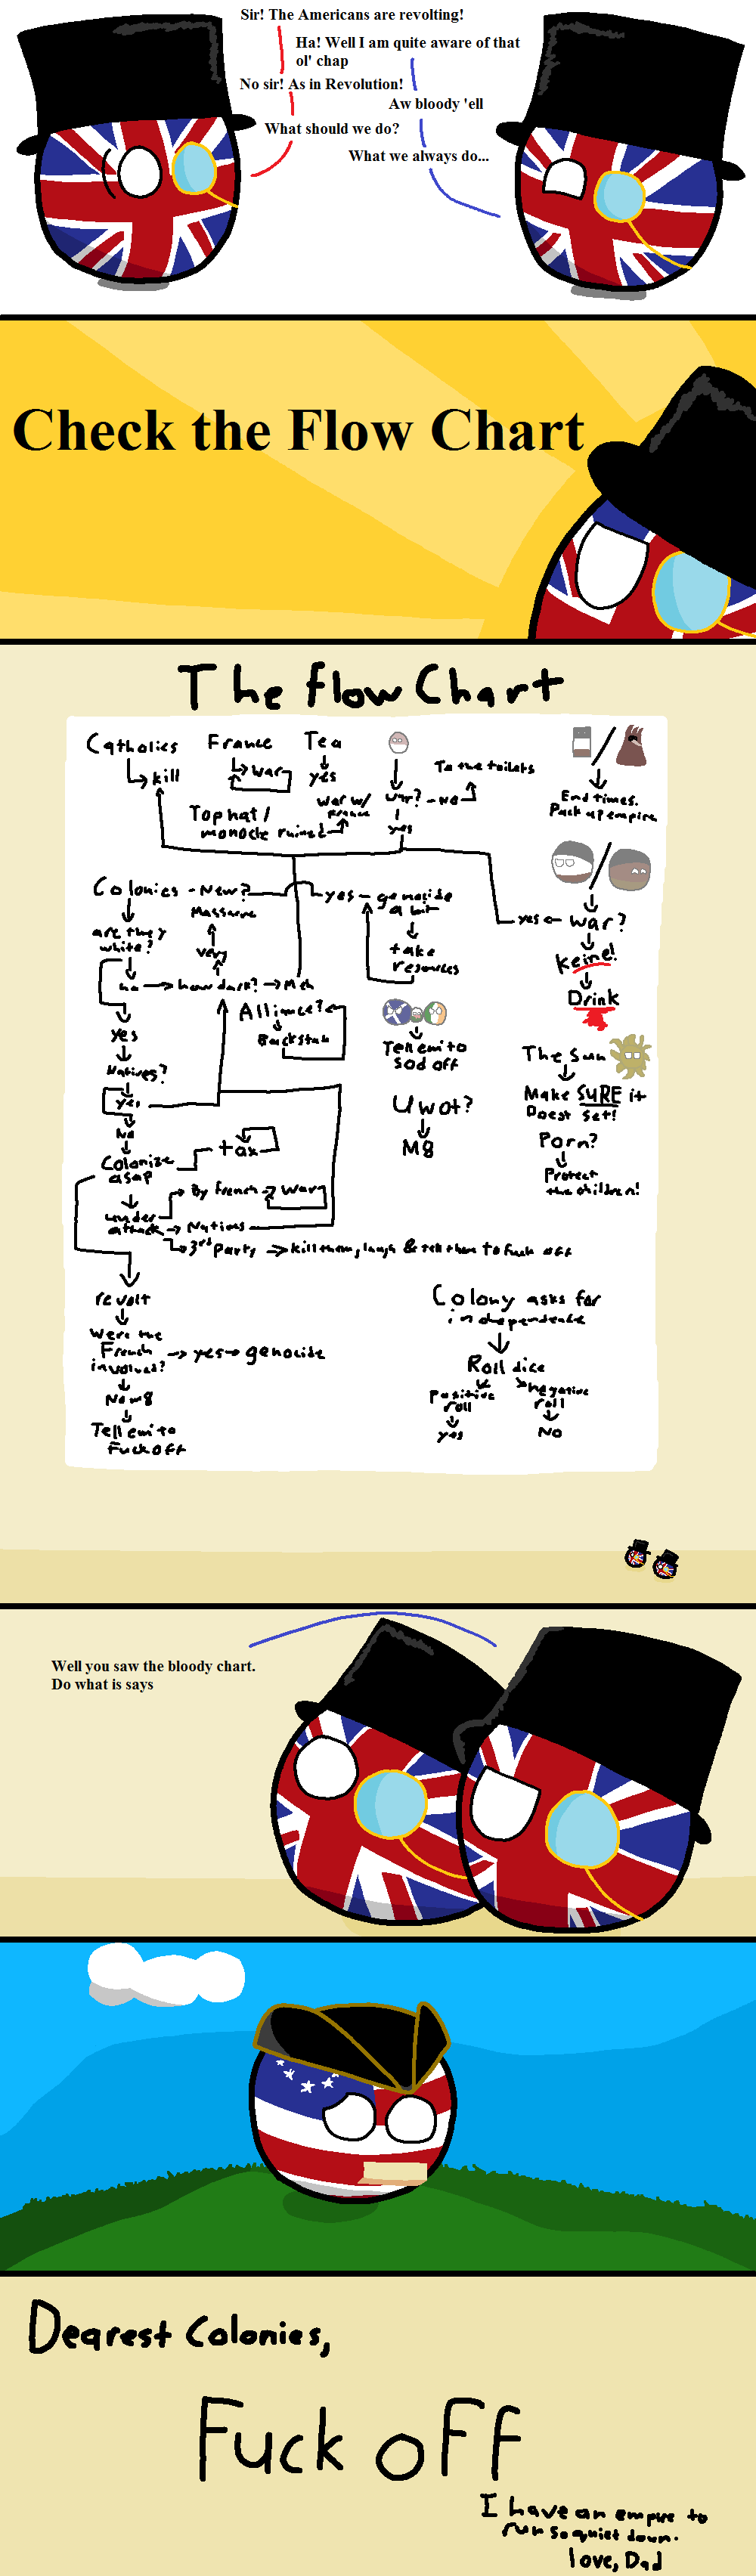 Sir! The Americans are revolting!
Ha! Well I am quite aware of that
ol' chap
No sir! As in Revolution!
Aw bloody 'ell
What should we do?
What we always do...
Check the Flow Chart
The Flow Chart
Catholics
kill
France
war
Tea
yes
war? - No
To the toilets
yes
Top hat/
monocle ruined
war w/
France
End times.
Pack up empire
Colonies - New? - yes - genocide
a bit
take
resources
Massacre
very
are they
white?
no
how dark?
Meh
yes
Natives?
yes
No
Colonize
asap
tax
Alliance?
Backstab
Tell em to
sod off
U wot?
M8
yes
war?
Keine!
Drink
The Sun
Make SURE it
Doesn't set!
Porn?
Protect
the children!
under
attack
By French
war
Natives
3rd Party
kill them, laugh & tell them to fuck off
revolt
Were the
French
involved?
yes
genocide
No m8
Tell em to
Fuck off
Colony asks for
independence
Roll dice
positive
roll
yes
negative
roll
No
Well you saw the bloody chart.
Do what is says
Dearest Colonies,
Fuck off
I have an empire to
run so quiet down.
love, Dad